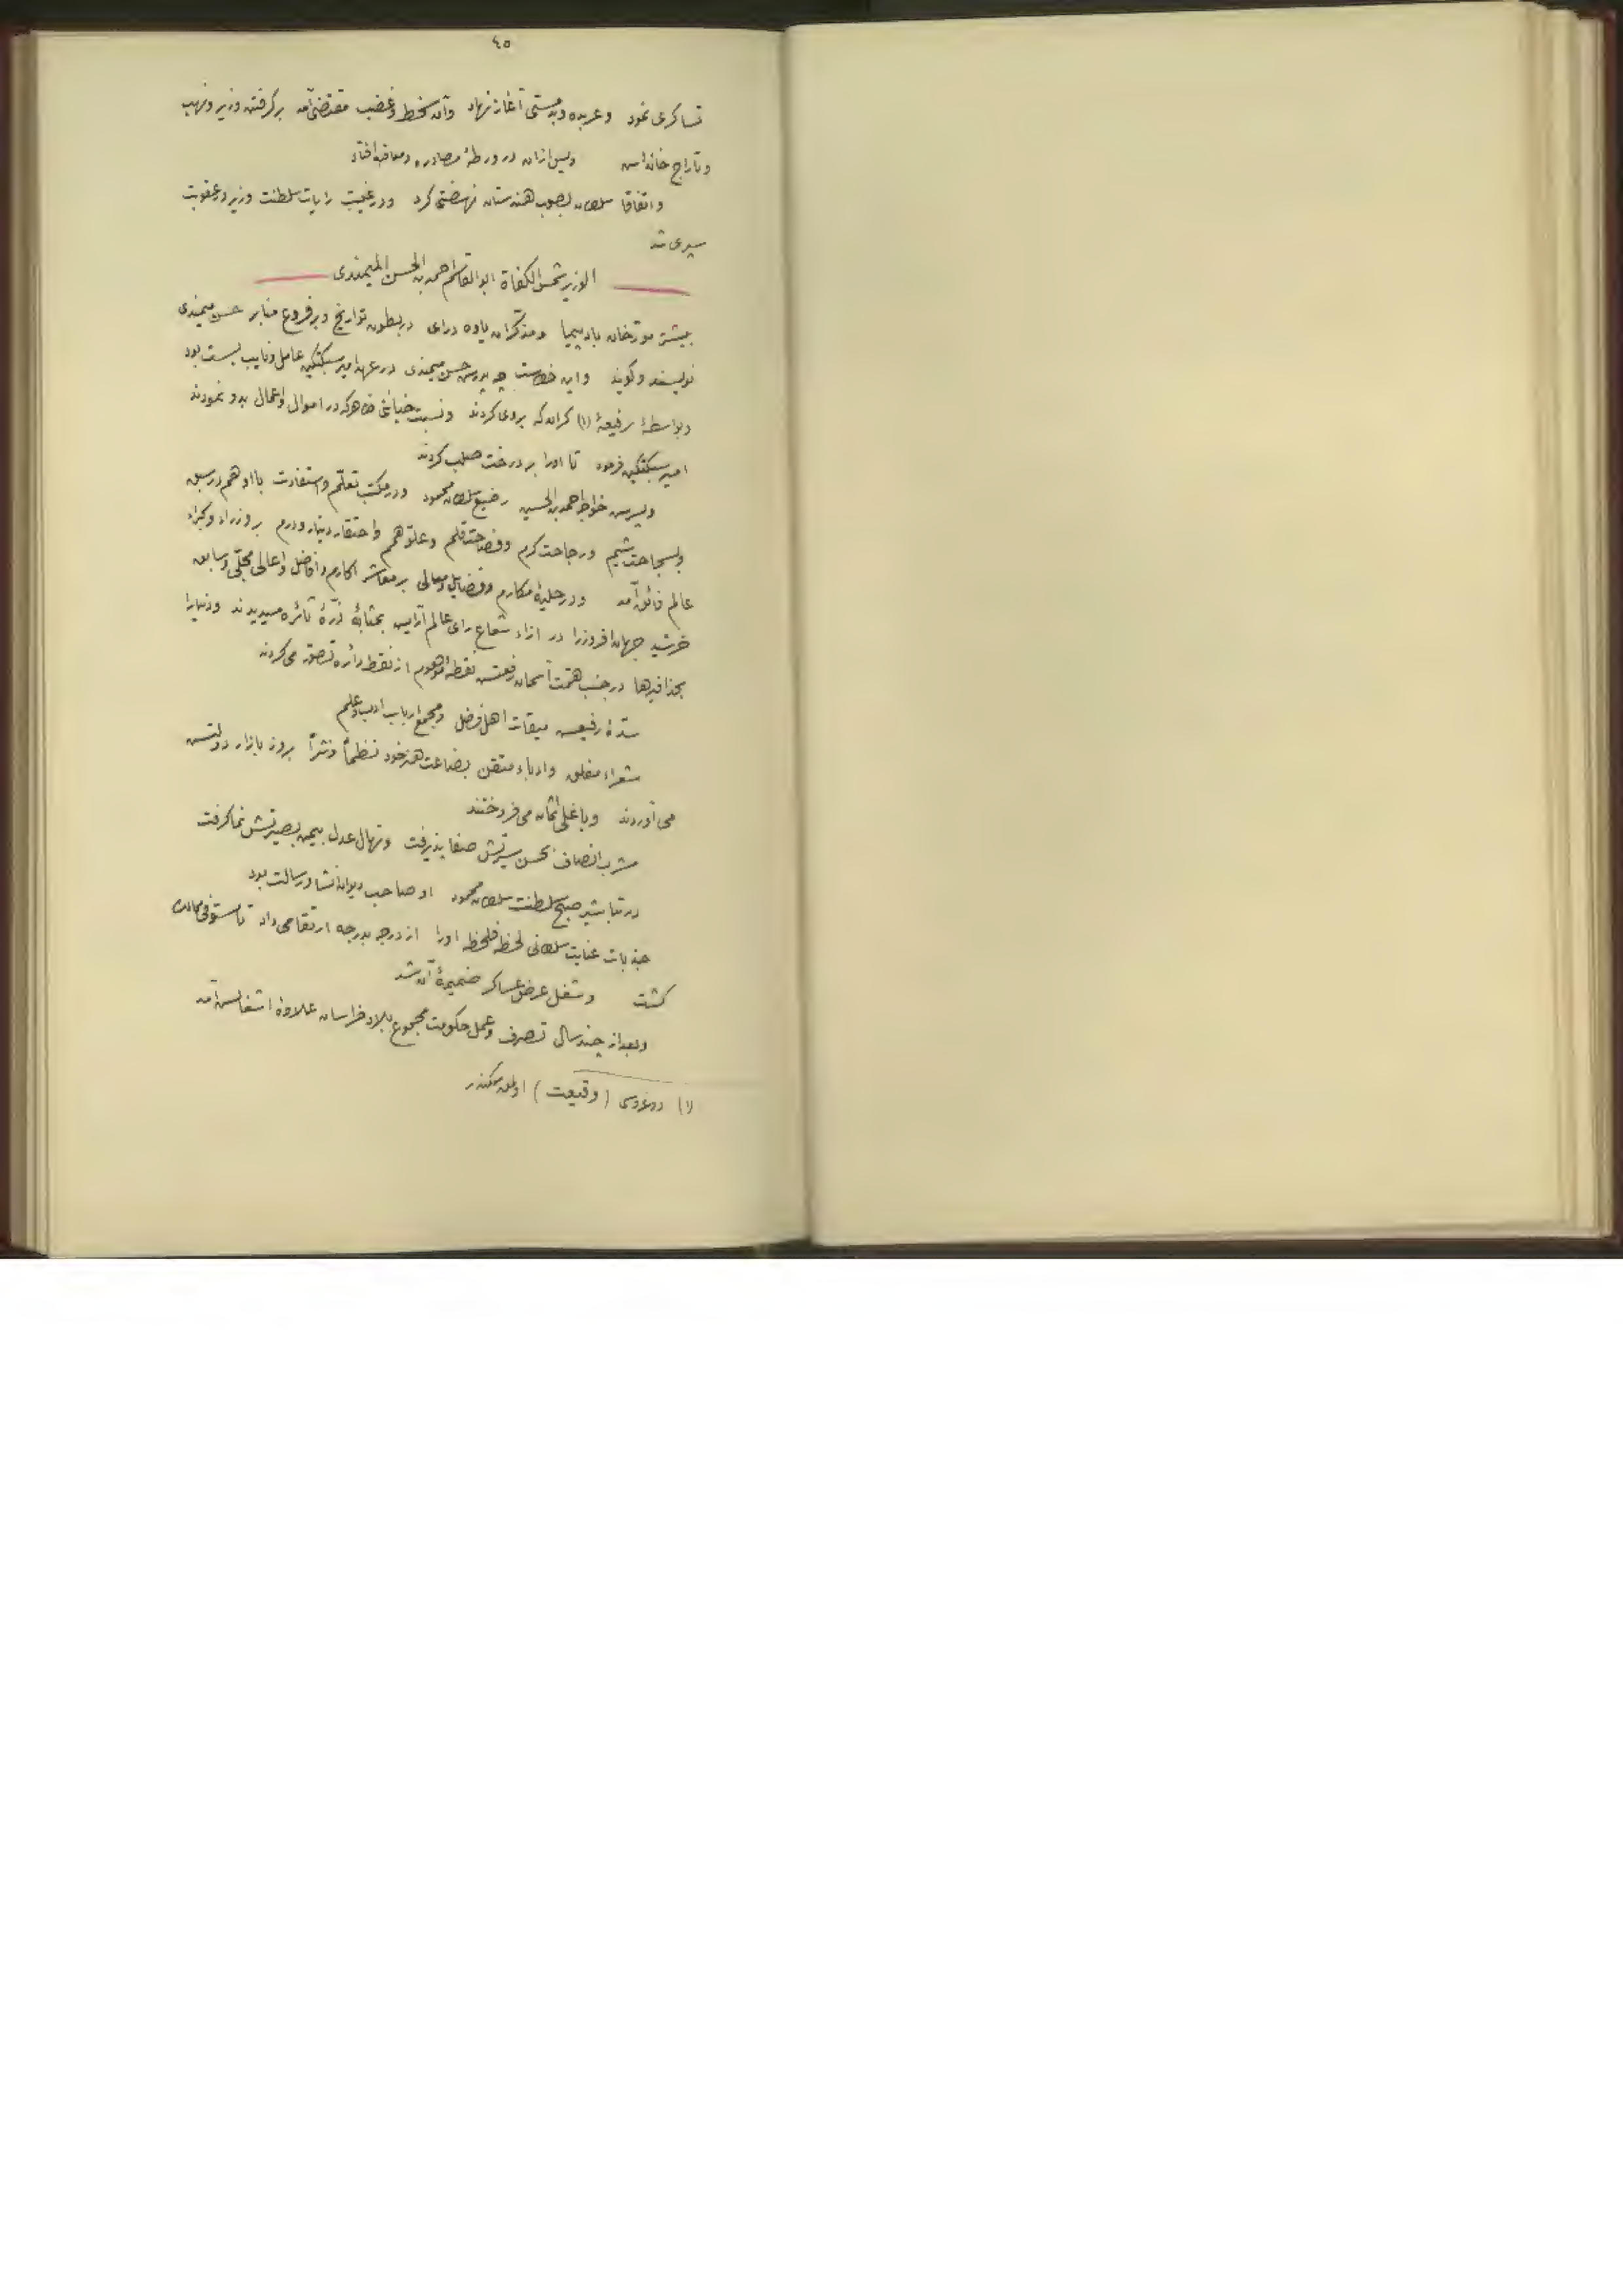 ٤٥
تساكرى نمود وعربده وبدمستى آغاز نهاد وآن سخط وغضب مقتضى آمد بر گرفتن وزير ونهب
وتاراج خانه اش وپس ازان در ورطهٔ مصادره ومعاقبه افتاد
واتفاقا سلطان بصوب هندستان نهضتى كرد ودر غيبت رايات سلطنت وزير در عقوبت
سپرى شد
الوزير شمس الكفاة ابو القاسم احمد بن الحسن الميمندى
بيشتر مورّخان باد پيما ومذكّران ياوه دراى در بطون تواريخ وبر فروع منابر حسن ميمندى
نويسند وگويند واين خطاست چه پدرش حسن ميمندى در عهد امير سبكتگين عامل ونايب بست بود
وبواسطهٔ رفيعهٔ (١) گران كه بر وى كردند ونسبت خيانتى ظاهر كه در اموال واعمال بدو نمودند
امير سبكتگين فرمود تا اورا بر درخت صلب كردند
وپسرش خواجه احمد بن الحسين رضيع سلطان محمود ودر مكتب تعلّم واستفادت با او هم درس بوده
وبسجاحت شيم ورجاحت كرم وفصاحت قلم وعلوّ همم واحتقار دينار ودرم بر وزراء وكبراء
عالم فائق آمد ودر حليهٔ مكارم وفضايل ومعالى بر معاشر اكارم وافاضل واعالى مجلّى وسابق
خرشيد جهان افروزرا در ازاء شعاع راى عالم آرايش بمثابهٔ ذرّهٔ ثائره ميديدند ودنيارا
بحذافيرها در جنب همّت آسمان رفعتش نقطهٔ موهوم از نقط دائره تصوّر مى كردند
سدّهٔ رفيعش ميقات اهل فضل ومجمع ارباب ادب وعلم
شعراء مفلق وادباء متقن بضاعت هنر خود نظماً ونثراً بروز بازار دولتش
مى آوردند وباغلى اثمان مى فروختند
مشرب انصاف بحسن سيرتش صفا پذيرفت ونهال عدل بيمن بصيرتش نما گرفت
در تباشير صبح سلطنت سلطان محمود او صاحب ديوان انشا ورسالت بود
جذبات عنايت سلطانى لحظه فلحظه اورا از درجه بدرجه ارتقا مى داد تا مستوفى ممالك
گشت وشغل عرض عساكر ضميمهٔ آن شد
وبعد از چند سال تصرف وعمل حكومت مجموع بلاد خراسان علاوهٔ اشغالش آمد
(١) (وقيعت) اولمق